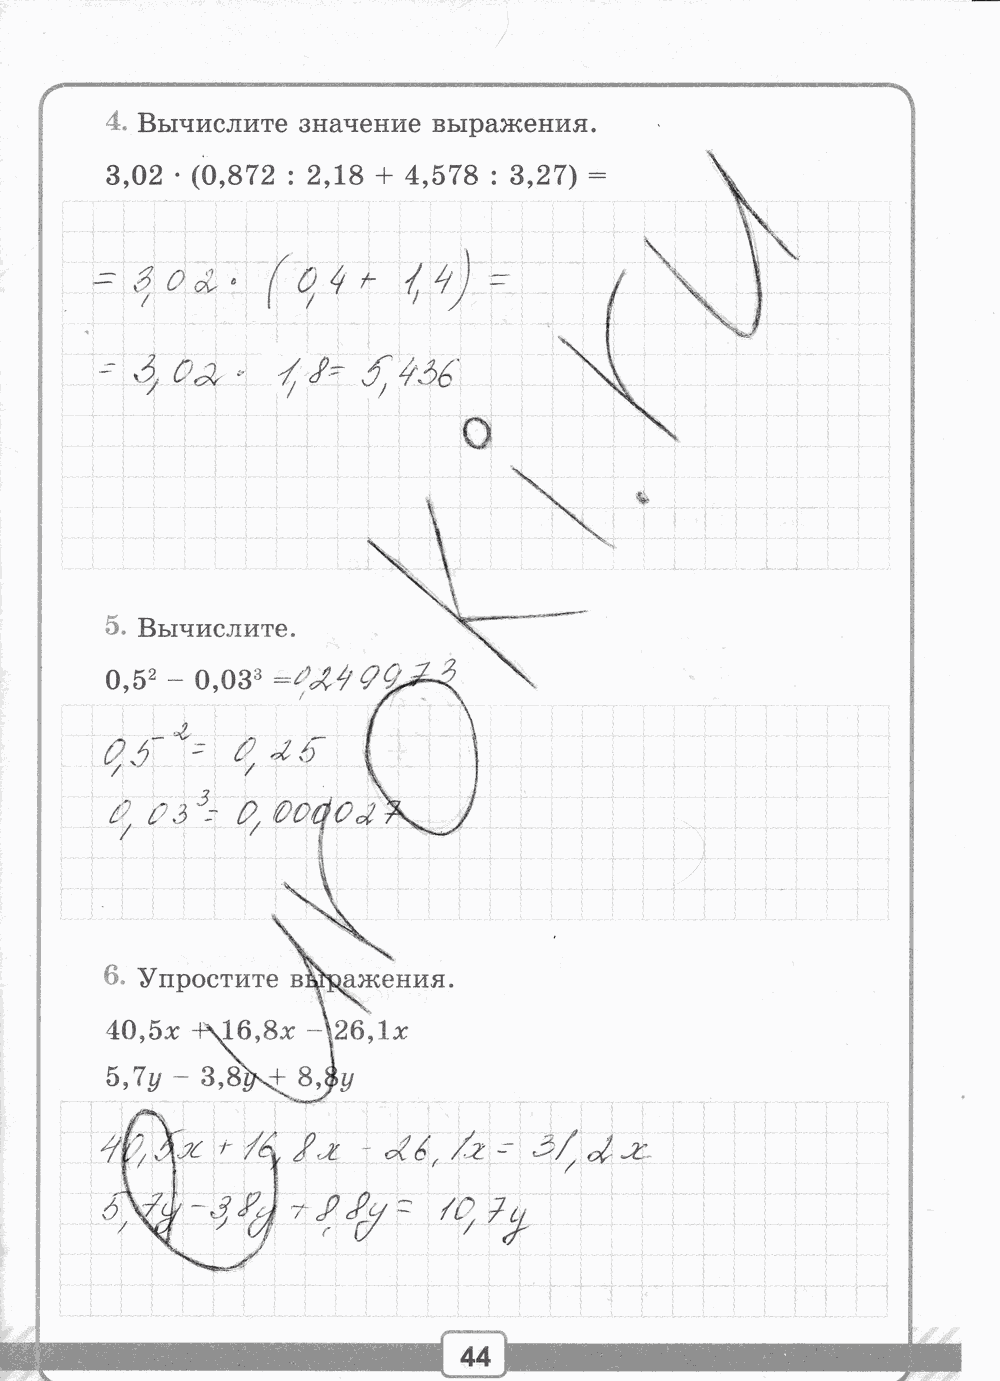 4. Вычислите значение выражения.
3,02 · (0,872 : 2,18 + 4,578 : 3,27) =
= 3,02 · (0,4 + 1,4) =
= 3,02 · 1,8 = 5,436
5. Вычислите.
0,5² − 0,03³ = 0,249973
0,5² = 0,25
0,03³ = 0,000027
6. Упростите выражения.
40,5x + 16,8x − 26,1x
5,7y − 3,8y + 8,8y
40,5x + 16,8x − 26,1x = 31,2x
5,7y − 3,8y + 8,8y = 10,7y
44
yroki.ry